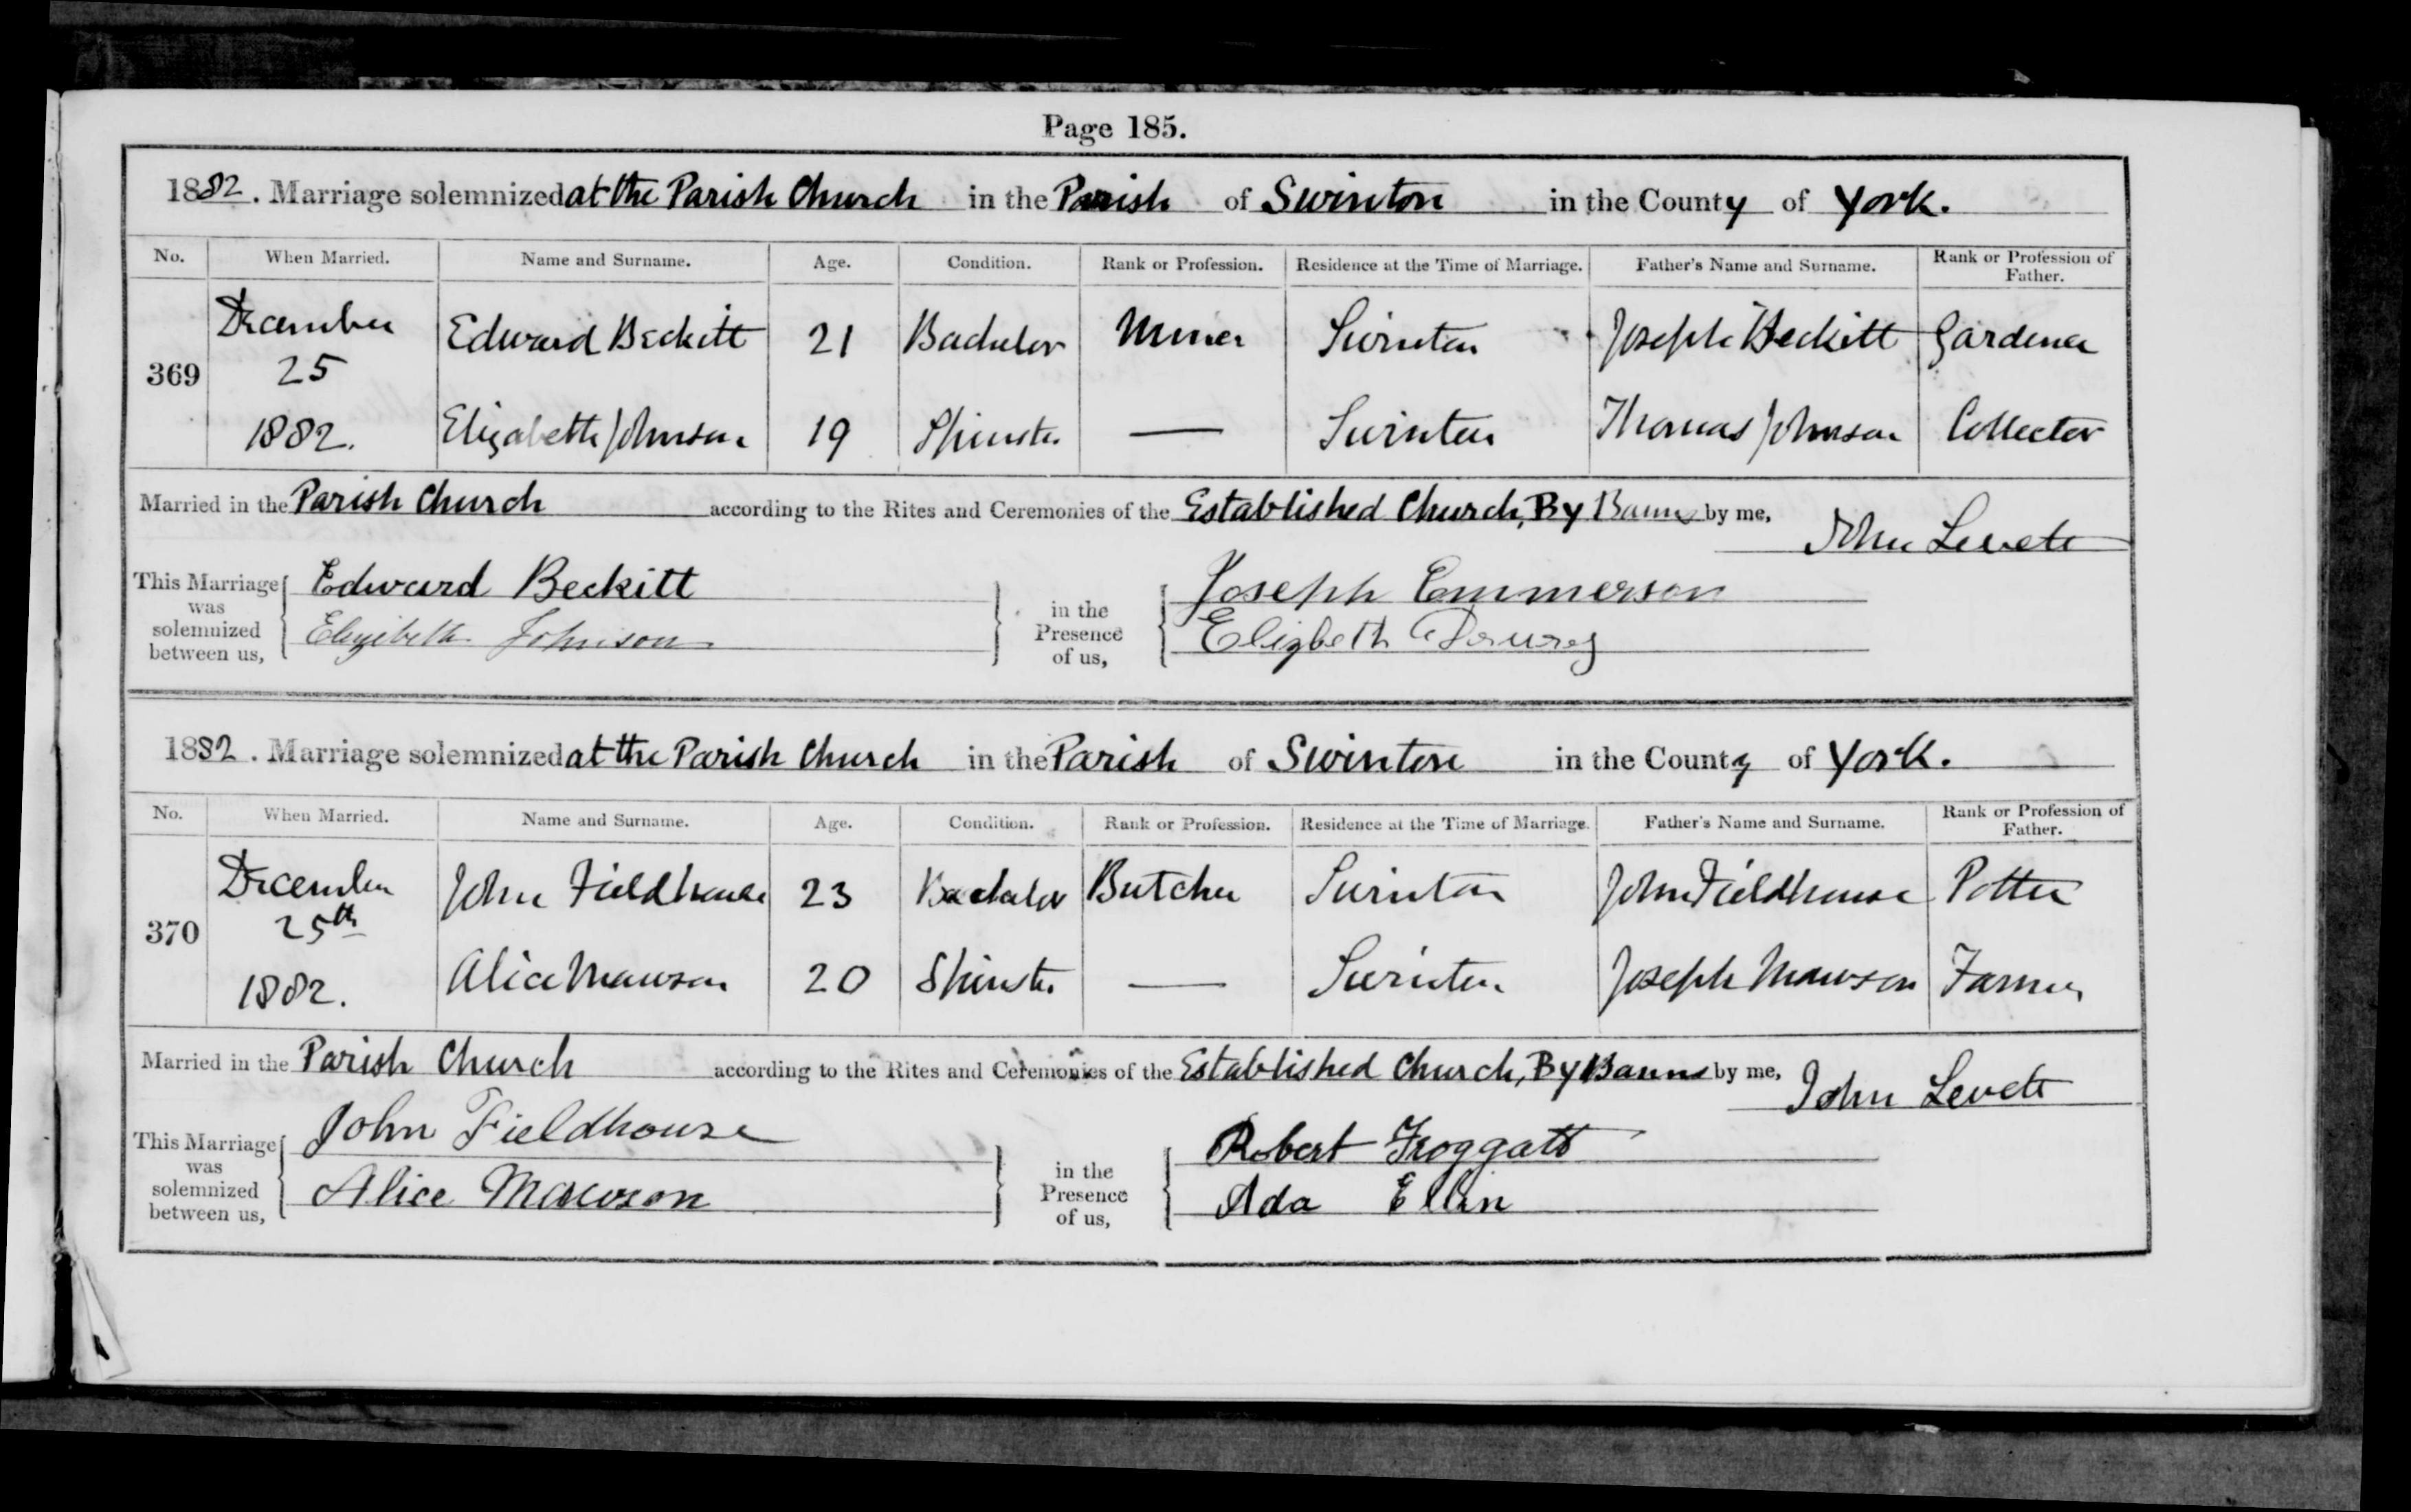 Page 185.
1882. Marriage solemnized at the Parish Church in the Parish of Swinton in the County of York.
No. When Married. Name and Surname. Age. Condition. Rank or Profession. Residence at the Time of Marriage. Father's Name and Surname. Rank or Profession of Father.
369 December 25 1882.
Edward Beckitt 21 Bachelor Miner Swinton Joseph Beckitt Gardener
Elizabeth Johnson 19 Spinster — Swinton Thomas Johnson Collector
Married in the Parish Church according to the Rites and Ceremonies of the Established Church, By Banns by me, John Levett
This Marriage was solemnized between us, Edward Beckitt in the Presence of us, Joseph Emmerson
Elezibeth Johnson Elizbeth
1882. Marriage solemnized at the Parish Church in the Parish of Swinton in the County of York.
No. When Married. Name and Surname. Age. Condition. Rank or Profession. Residence at the Time of Marriage. Father's Name and Surname. Rank or Profession of Father.
370 December 25th 1882.
John Fieldhouse 23 Bachelor Butcher Swinton John Fieldhouse Potter
Alice Mawson 20 Spinster — Swinton Joseph Mawson Farmer
Married in the Parish Church according to the Rites and Ceremonies of the Established Church, By Banns by me, John Levett
This Marriage was solemnized between us, John Fieldhouse in the Presence of us, Robert Froggatt
Alice Mawson Ada Ellin